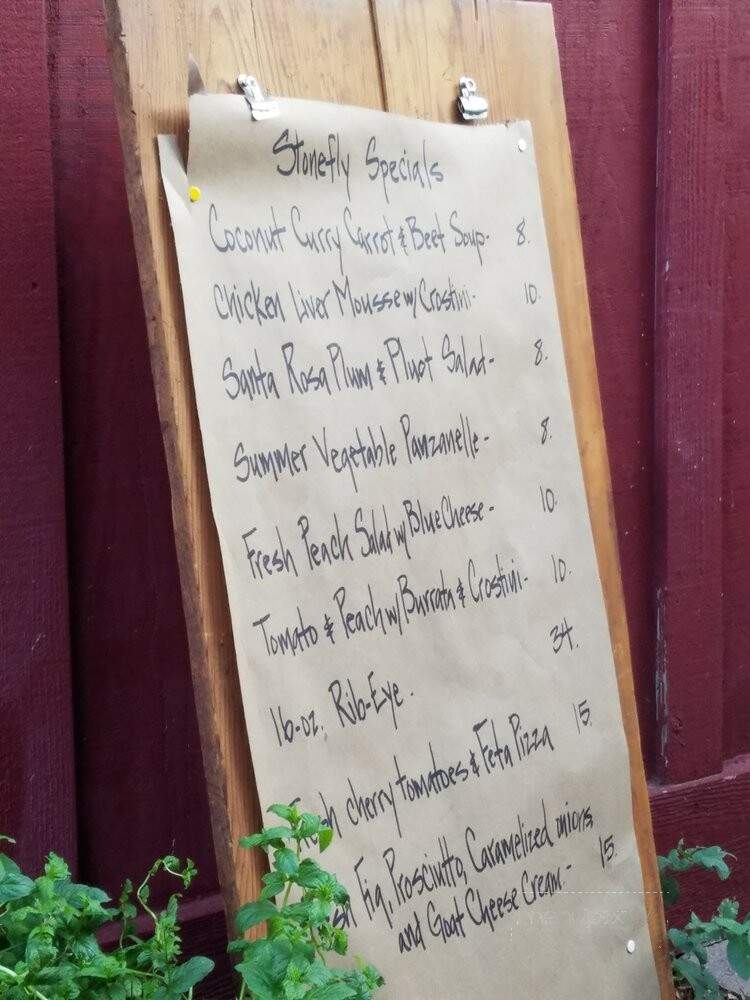 Stonefly Specials
Coconut Curry Carrot & Beet Soup- 8.
Chicken Liver Mousse w/ Crostini- 10.
Santa Rosa Plum & Pluot Salad- 8.
Summer Vegetable Panzanelle- 8.
Fresh Peach Salad w/ Blue Cheese- 10.
Tomato & Peach w/ Burrata & Crostini- 10.
16-oz. Rib-Eye. 34.
cherry tomatoes & Feta Pizza 15.
Fig, Prosciutto, Caramelized onions
and Goat Cheese Cream.- 15.